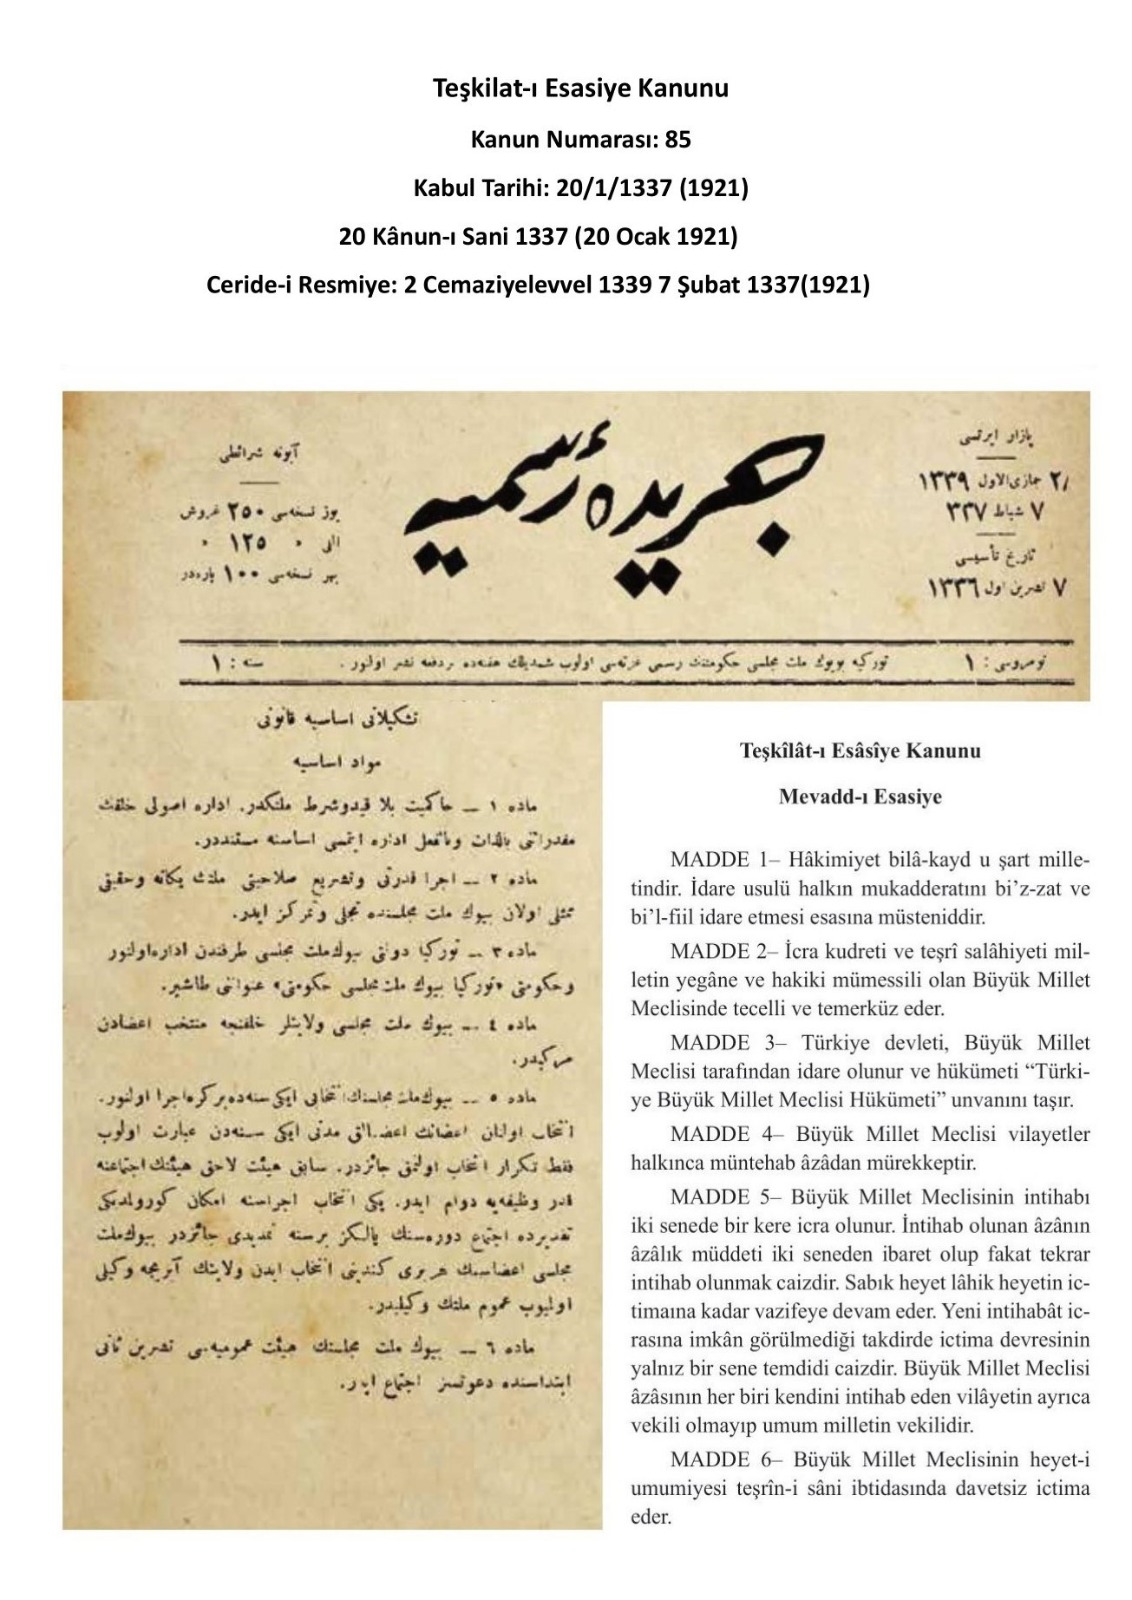 Teşkilat-ı Esasiye Kanunu
Kanun Numarası: 85
Kabul Tarihi: 20/1/1337 (1921)
20 Kânun-ı Sani 1337 (20 Ocak 1921)
Ceride-i Resmiye: 2 Cemaziyelevvel 1339 7 Şubat 1337(1921)
پازار ايرتسی
٢٨ جمازی‌الاول ١٣٣٩
٧ شباط ٣٣٧
تاريخ تأسيسی
٧ تشرين اول ١٣٣٦
جريدهٔ رسميه
آبونه شرائطی
يوز نسخه‌سی ٢٥٠ غروش
اللی " ١٢٥ "
بهر نسخه‌سی ١٠٠ پاره‌در
نومروسی : ١
توركيه بويوك ملت مجلسی حكومتنك رسمی غزته‌سی اولوب شمديلك هفته‌ده بردفعه نشر اولنور .
سنه : ١
تشكيلاتی اساسيه قانونی
مواد اساسيه
ماده ١ ــ حاكميت بلا قيدوشرط ملتكدر. اداره اصولی خلقك
مقدراتی بالذات وبالفعل اداره ايتمسی اساسنه مستنددر.
ماده ٢ ــ اجرا قدرتی وتشريع صلاحيتی ملتك يكانه وحقيقی
ممثلی اولان بيوك ملت مجلسنده تجلی وتمركز ايدر.
ماده ٣ ــ توركيا دولتی بيوك‌ملت مجلسی طرفندن اداره‌اولنور
وحكومتی «توركيا بيوك ملت‌مجلسی حكومتی» عنوانی طاشير.
ماده ٤ ــ بيوك ملت مجلسی ولايتلر خلقنجه منتخب اعضادن
مركبدر.
ماده ٥ ــ بيوك‌ملت مجلسنك انتخابی ايكی سنه‌ده‌بركره‌اجرا اولنور.
انتخاب اولنان اعضانك اعضالق مدتی ايكی سنه‌دن عبارت اولوب
فقط تكرار انتخاب اولنمق جائزدر. سابق هيئت لاحق هيئتك اجتماعنه
قدر وظيفه‌يه دوام ايدر. يكی انتخاب اجراسنه امكان كورولمديكی
تقديرده اجتماع دوره‌سنك يالكز برسنه تمديدی جائزدر بيوك‌ملت
مجلسی اعضاسنك هربری كندينی انتخاب ايدن ولايتك آيريجه وكيلی
اوليوب عموم ملتك وكيليدر.
ماده ٦ ــ بيوك ملت مجلسنك هيئت عموميه‌سی تشرين ثانی
ابتداسنده دعوتسز اجتماع ايدر.
Teşkîlât-ı Esâsîye Kanunu
Mevadd-ı Esasiye
MADDE 1– Hâkimiyet bilâ-kayd u şart mille-
tindir. İdare usulü halkın mukadderatını bi’z-zat ve
bi’l-fiil idare etmesi esasına müsteniddir.
MADDE 2– İcra kudreti ve teşrî salâhiyeti mil-
letin yegâne ve hakiki mümessili olan Büyük Millet
Meclisinde tecelli ve temerküz eder.
MADDE 3– Türkiye devleti, Büyük Millet
Meclisi tarafından idare olunur ve hükümeti “Türki-
ye Büyük Millet Meclisi Hükümeti” unvanını taşır.
MADDE 4– Büyük Millet Meclisi vilayetler
halkınca müntehab âzâdan mürekkeptir.
MADDE 5– Büyük Millet Meclisinin intihabı
iki senede bir kere icra olunur. İntihab olunan âzânın
âzâlık müddeti iki seneden ibaret olup fakat tekrar
intihab olunmak caizdir. Sabık heyet lâhik heyetin ic-
timaına kadar vazifeye devam eder. Yeni intihabât ic-
rasına imkân görülmediği takdirde ictima devresinin
yalnız bir sene temdidi caizdir. Büyük Millet Meclisi
âzâsının her biri kendini intihab eden vilâyetin ayrıca
vekili olmayıp umum milletin vekilidir.
MADDE 6– Büyük Millet Meclisinin heyet-i
umumiyesi teşrîn-i sâni ibtidasında davetsiz ictima
eder.